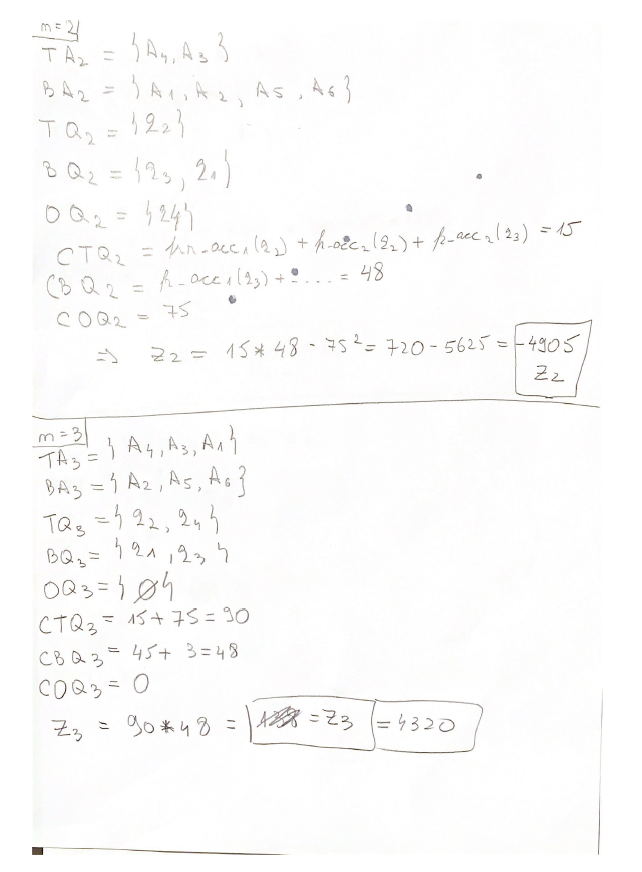 m=2
TA2 = {A4, A3}
BA2 = {A1, A2, A5, A6}
TQ2 = {q2}
BQ2 = {q3, q1}
OQ2 = {q4}
CTQ2 = acc1(q2) + acc2(q2) + acc2(q3) = 15
CBQ2 = acc1(q3) + .... = 48
COQ2 = 75
=> Z2 = 15 * 48 - 75² = 720 - 5625 = -4905
Z2
m=3
TA3 = {A4, A3, A1}
BA3 = {A2, A5, A6}
TQ3 = {q2, q4}
BQ3 = {q1, q3}
OQ3 = {Ø}
CTQ3 = 15 + 75 = 90
CBQ3 = 45 + 3 = 48
COQ3 = 0
Z3 = 90 * 48 = = Z3 = 4320